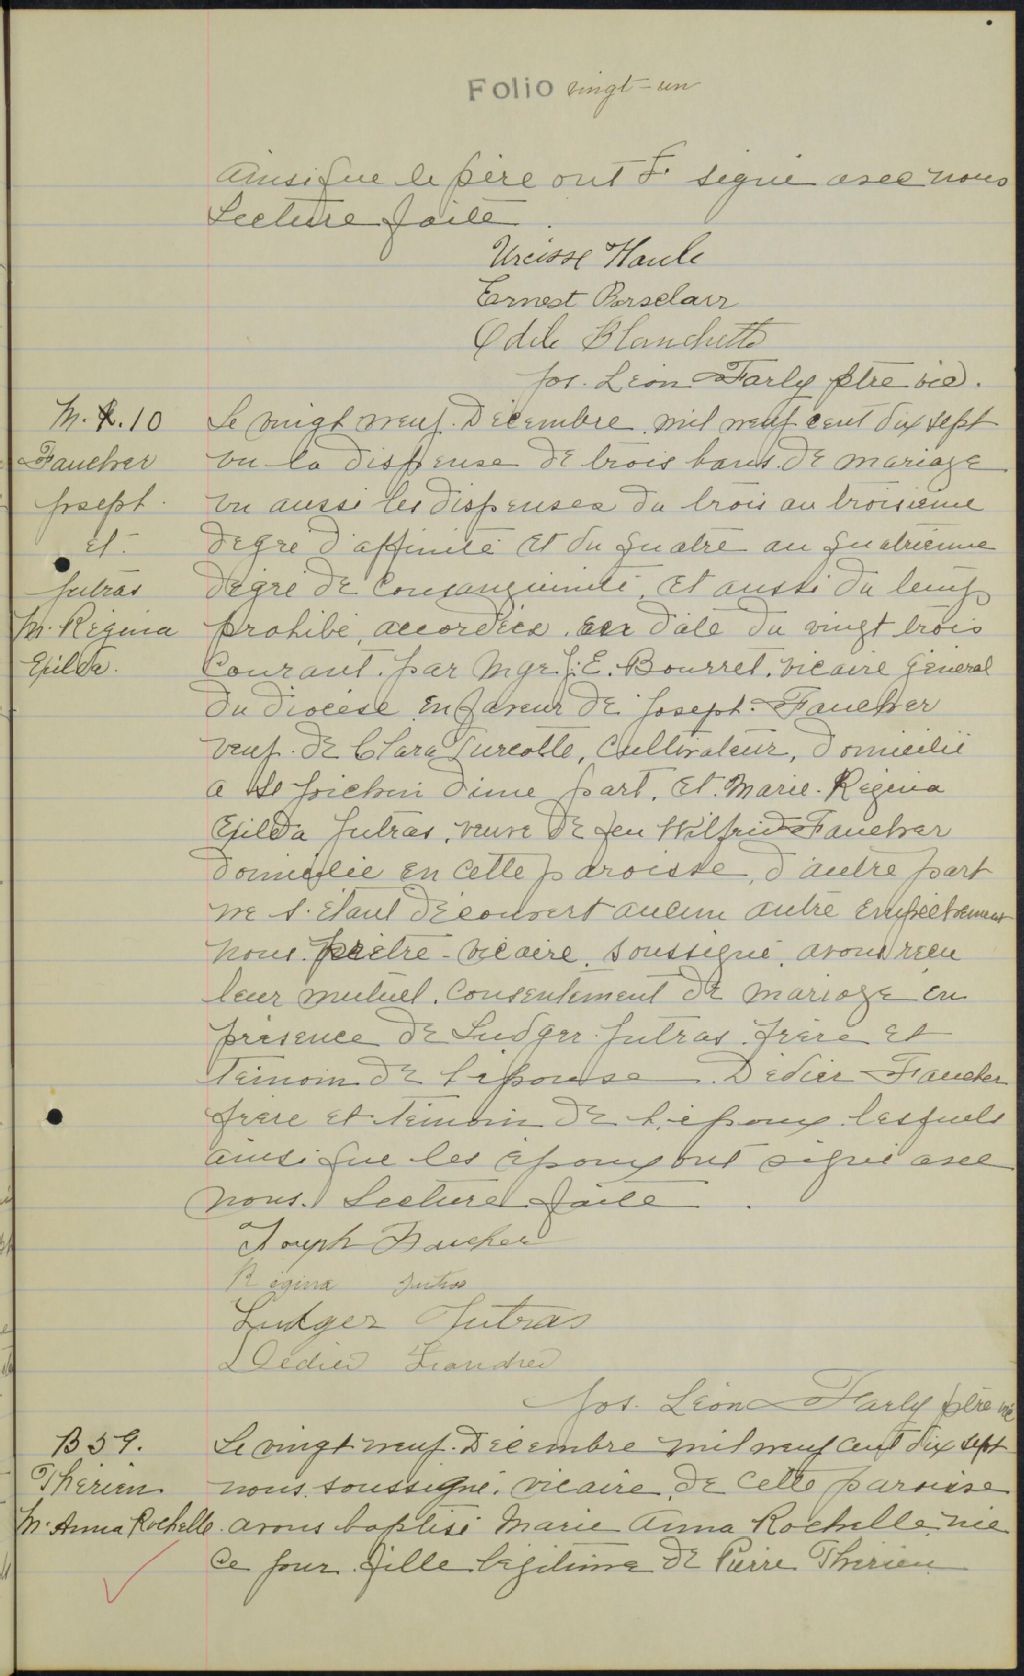 Folio vingt-un
ainsi que le père ont signé avec nous
Lecture faite.
Houle
Ernest
Odila Blanchette
Jos. Léon Farly ptre vic.
M. 10
Faucher
Joseph
et
Jutras
M. Régina
Exilda.
Le vingt neuf Décembre mil neuf cent dix sept
vu la dispense de trois bans de mariage
vu aussi les dispenses du trois au troisième
degré d'affinité et du quatre au quatrième
degré de consanguinité, et aussi du temps
prohibé, accordées en date du vingt trois
courant par Mgr J. E. Bourret, vicaire général
du diocèse en faveur de Joseph Faucher
veuf de Clara Turcotte, cultivateur, domicilié
a d'une part, et Marie Régina
Exilda Jutras, veuve de feu Wilfrid Faucher
domicilié en cette paroisse, d'autre part
ne s'étant découvert aucun autre empêchement
nous prêtre-vicaire soussigné, avons reçu
leur mutuel consentement de mariage en
présence de Ludger Jutras frère et
témoin de l'épouse Dédier Faucher
frère et témoin de l'époux lesquels
ainsi que les époux ont signé avec
nous. Lecture faite.
Joseph Faucher
Régina Jutras
Ludger Jutras
Dedier
Jos. Léon Farly ptre vic
B 59.
Thérien
M. Anna Rochelle
Le vingt neuf Décembre mil neuf cent dix sept
nous soussigné, vicaire de cette paroisse
avons baptisé Marie Anna Rochelle née
ce jour fille légitime de Pierre Thérien